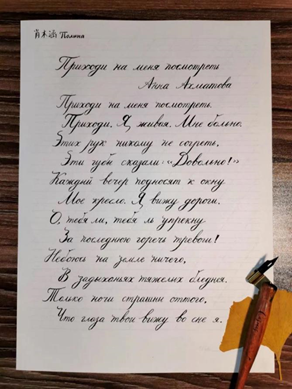 Полина
Приходи на меня посмотреть
Анна Ахматова
Приходи на меня посмотреть.
Приходи. Я живая. Мне больно.
Этих рук никому не согреть,
Эти губы сказали: «Довольно!»
Каждый вечер подносят к окну
Мое кресло. Я вижу дороги.
О, тебя ли, тебя ль упрекну
За последнюю горечь тревоги!
Не боюсь на земле ничего,
В задыханьях тяжелых бледнея.
Только ночи страшны оттого,
Что глаза твои вижу во сне я.